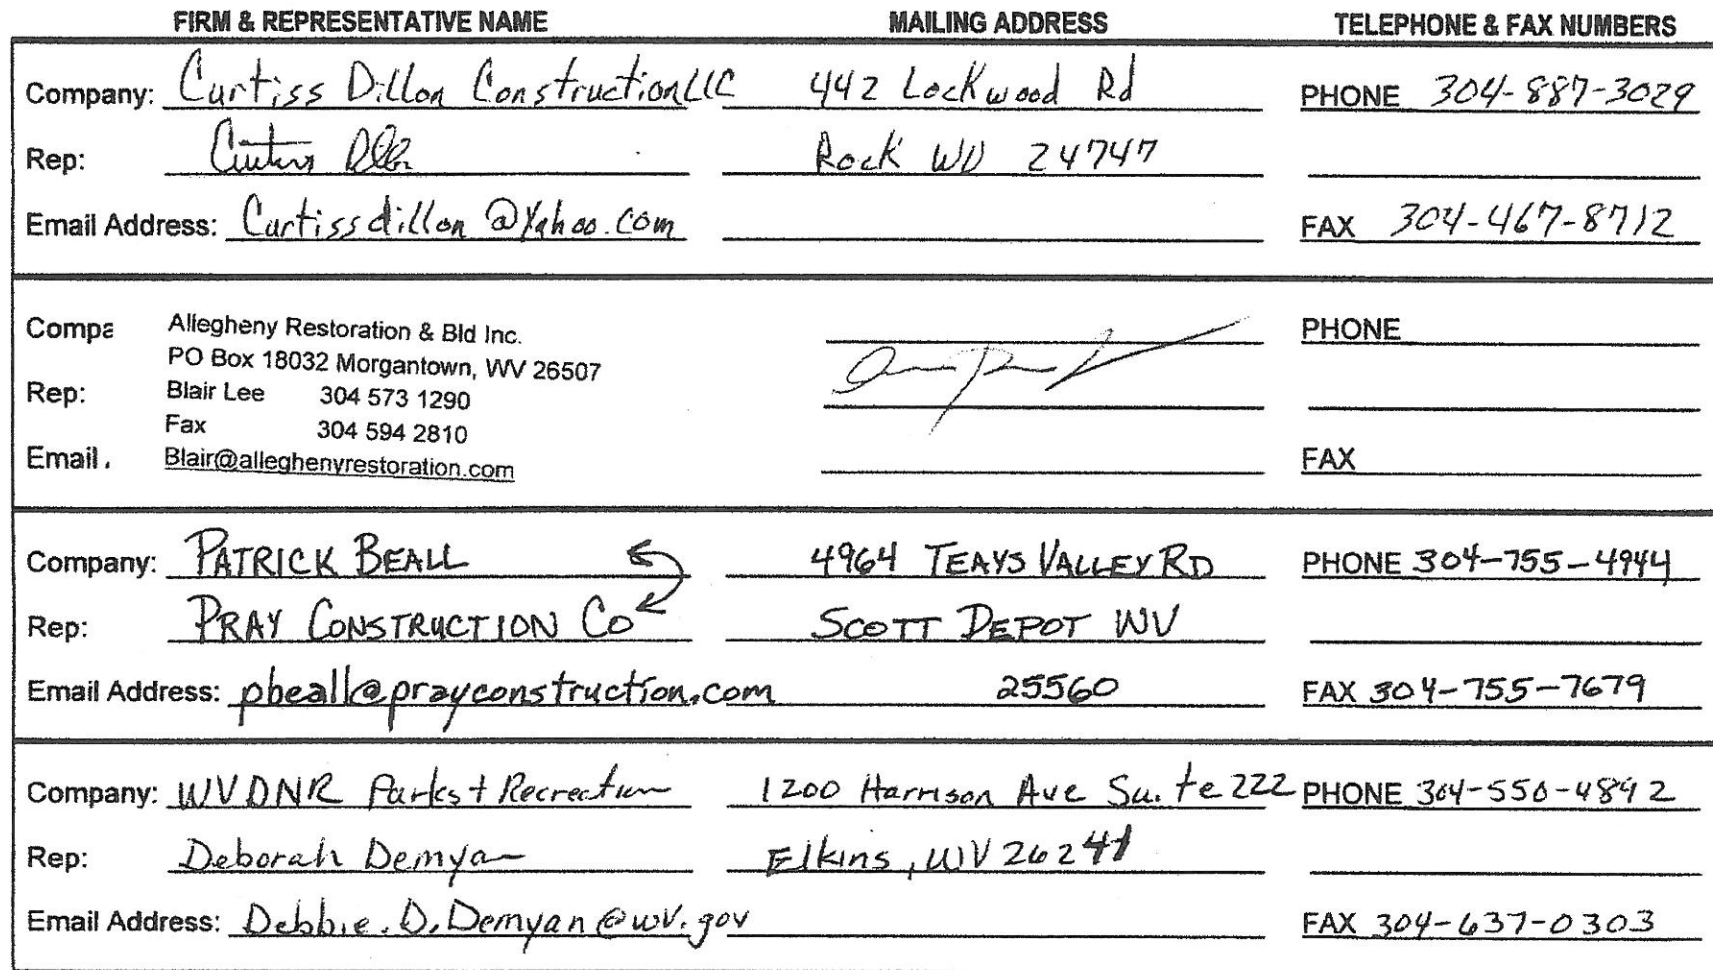 FIRM & REPRESENTATIVE NAME MAILING ADDRESS TELEPHONE & FAX NUMBERS
Company: Curtiss Dillon Construction LLC 442 Lockwood Rd PHONE 304-887-3029
Rep: Rock WV 24747
Email Address: Curtissdillon@Yahoo.com FAX 304-467-8712
Compa Allegheny Restoration & Bld Inc. PHONE
PO Box 18032 Morgantown, WV 26507
Rep: Blair Lee 304 573 1290
Fax 304 594 2810
Email Blair@alleghenyrestoration.com FAX
Company: PATRICK BEALL 4964 TEAYS VALLEY RD PHONE 304-755-4944
Rep: PRAY CONSTRUCTION CO SCOTT DEPOT WV
Email Address: pbeall@prayconstruction.com 25560 FAX 304-755-7679
Company: WVDNR Parks + Recreation 1200 Harrison Ave Suite 222 PHONE 304-550-4892
Rep: Deborah Demyan Elkins, WV 26241
Email Address: Debbie.D.Demyan@wv.gov FAX 304-637-0303